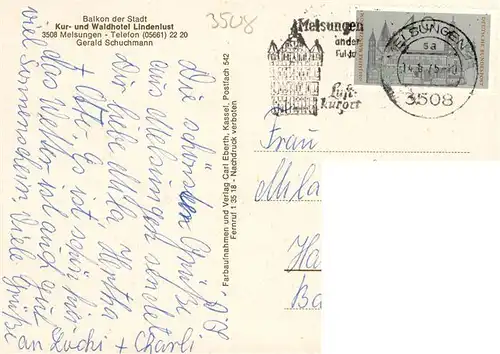 Balkon der Stadt
Kur- und Waldhotel Lindenlust
3508 Melsungen - Telefon (05661) 22 20
Gerald Schuchmann
3508
Die schönsten Grüße
aus Melsungen sendet
Dir liebe Mila, Hertha
+ Otto. Es ist schön hier
das Wetter ist auch gut
viel Sonnenschein. Viele Grüße
an Luchi + Charli
Farbaufnahmen und Verlag Carl Eberth, Kassel, Postfach 542
Fernruf 1 35 18 - Nachdruck verboten
Melsungen
an der
Fulda
Luft-
kurort
MELSUNGEN
sa
14.8.75
3508
DEUTSCHE BUNDESPOST
Frau
Mila
Ha
Ba